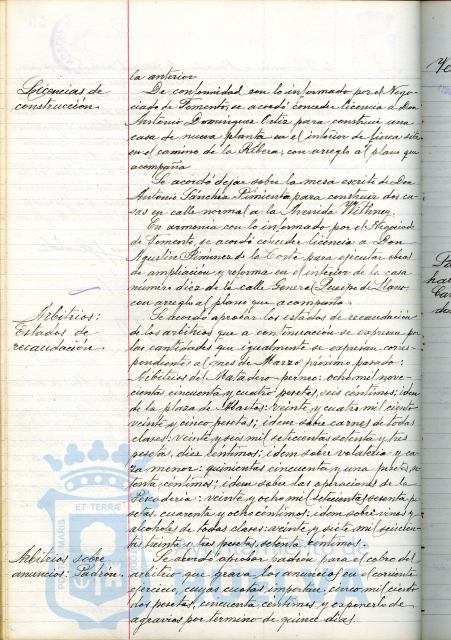 la anterior
Licencias de
construcción.
De conformidad con lo informado por el Nego-
ciado de Fomento, se acordó conceder licencia a Don
Antonio Domínguez Ortiz para construir una
casa de nueva planta en el interior de finca sita
en el camino de la Ribera, con arreglo al plano que
acompaña
Se acordó dejar sobre la mesa escrito de Don
Antonio Sánchez Pimienta para construir dos ca-
sas en calle normal a la Avenida Withney.
En armonía con lo informado por el Negociado
de Fomento, se acordó conceder licencia a Don
Agustín Jiménez de la Corte para ejecutar obras
de ampliación y reforma en el interior de la casa
número diez de la calle General Queipo de Llano,
con arreglo al plano que acompaña.
Arbitrios:
Estados de
recaudación.
Se acordó aprobar los estados de recaudación
de los arbitrios que a continuación se expresan por
las cantidades que igualmente se expresan corres-
pondientes al mes de Marzo próximo pasado:
Arbitrios del Matadero perneo: ocho mil nove-
cientas cincuenta y cuatro pesetas, seis céntimos; idem
de la plaza de Abastos: veinte y cuatro mil ciento
veinte y cinco pesetas; idem sobre carnes de todas
clases: veinte y seis mil setecientas setenta y tres
pesetas, diez céntimos; idem sobre volatería y ca-
za menor: quinientas cincuenta y una pesetas, se-
tenta céntimos; idem sobre las operaciones de la
Pescadería: veinte y ocho mil setecientas sesenta pe-
setas, cuarenta y ocho céntimos; idem sobre vinos y
alcoholes de todas clases: veinte y siete mil seiscien-
tas treinta y tres pesetas, setenta céntimos.
Arbitrios sobre
anuncios: Padrón.
Se acordó aprobar padrón para el cobro del
arbitrio que grava los anuncios en el corriente
ejercicio, cuyas cuotas importan cinco mil ciento
dos pesetas, cincuenta céntimos, y exponerlo de
agravios por término de quince días.
ET TERRAE